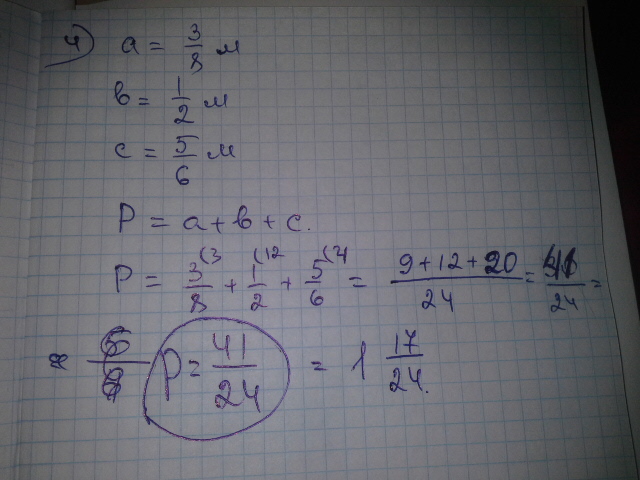 4) a = 3/8 м
в = 1/2 м
c = 5/6 м
P = a + в + c.
P = 3/8 (3 + 1/2 (12 + 5/6 (4 = 9 + 12 + 20 / 24 = 41/24 =
= P = 41/24 = 1 17/24.